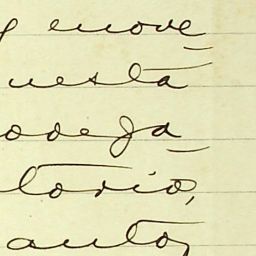 y enove
uesta
odega
torio,
auto,